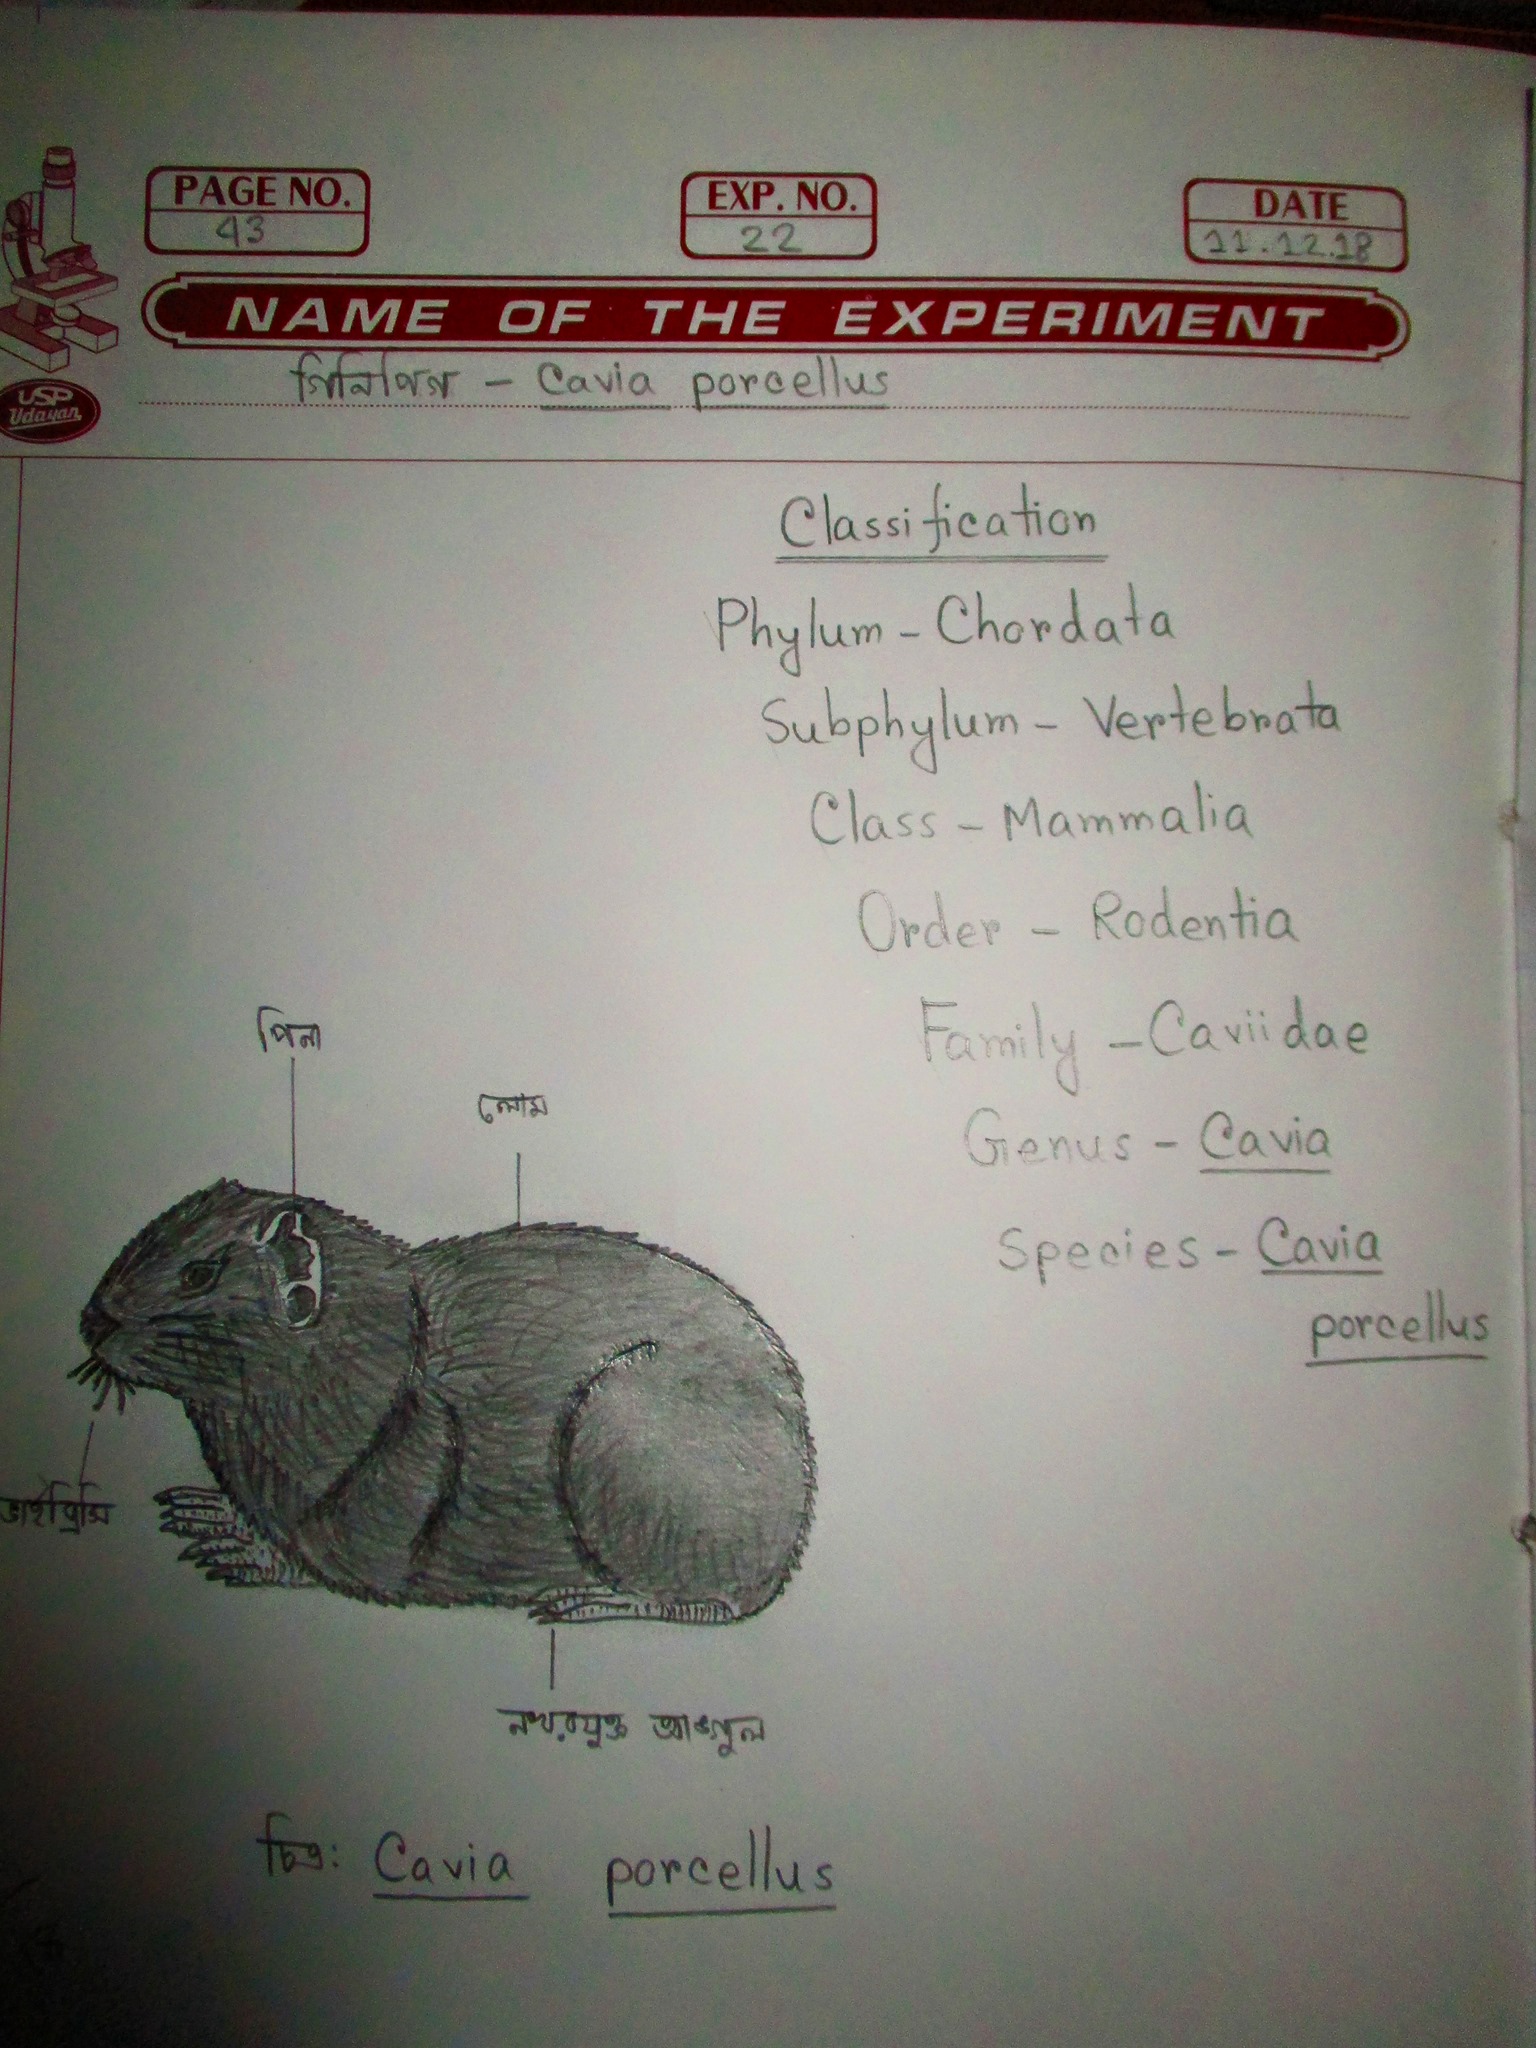 PAGE NO.
43
EXP. NO.
22
DATE
11.12.18
NAME OF THE EXPERIMENT
USP
Udayan
গিনিপিগ - Cavia porcellus
Classification
Phylum - Chordata
Subphylum - Vertebrata
Class - Mammalia
Order - Rodentia
Family - Caviidae
Genus - Cavia
Species - Cavia
porcellus
পিনা
লোম
ভাইব্রিসি
নখরযুক্ত আঙ্গুল
চিত্র: Cavia porcellus